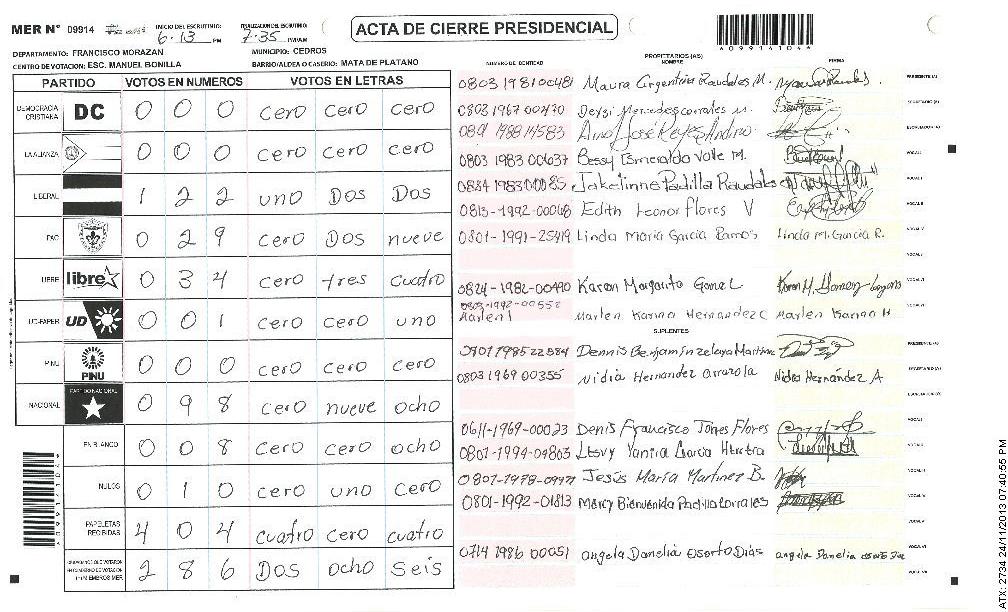 MER N° 09914
INICIO DEL ESCRUTINIO: 6-13 PM
FINALIZACION DEL ESCRUTINIO: 7:35 PM/AM
ACTA DE CIERRE PRESIDENCIAL
4099141044
DEPARTAMENTO: FRANCISCO MORAZAN
MUNICIPIO: CEDROS
CENTRO DE VOTACION: ESC. MANUEL BONILLA
BARRIO/ALDEA O CASERIO: MATA DE PLATANO
PARTIDO VOTOS EN NUMEROS VOTOS EN LETRAS
DEMOCRACIA CRISTIANA DC 0 0 0 cero cero cero
LA ALIANZA 0 0 0 cero cero cero
LIBERAL 1 2 2 uno Dos Dos
PAC 0 2 9 cero Dos nueve
LIBRE libre 0 3 4 cero tres cuatro
UD-FAPER UD 0 0 1 cero cero uno
PINU PINU 0 0 0 cero cero cero
NACIONAL PARTIDO NACIONAL 0 9 8 cero nueve ocho
EN BLANCO 0 0 8 cero cero ocho
NULOS 0 1 0 cero uno cero
PAPELETAS RECIBIDAS 4 0 4 cuatro cero cuatro
2 8 6 Dos ocho seis
NUMERO DE IDENTIDAD
PROPIETARIOS (AS)
NOMBRE
FIRMA
0803 1981 00481 Maura Argentina Raudales M. PRESIDENTE (A)
0803 1967 00470 Deysi Mercedes corrales M. SECRETARIO (A)
José Reyes Andino ESCRUTADOR (A)
0803 1983 00637 Bessy Esmeralda Valle M. VOCAL I
Jakelinne Padilla Raudales
0813-1992-00068 Edith Leonor Flores V
0801-1991-25419 Linda Maria Garcia Ramos Linda M. Garcia R.
0824-1982-00490 Karen Margarita Gomez
0803-1992-00552
Marlen Marlen Karina Hernandez C Marlen Karina H
SUPLENTES
Dennis Benjamin Zelaya Martinez PRESIDENTE (A)
0803 1969 00355 Nidia Hernandez arrazola Nidia Hernández A SECRETARIO (A)
ESCRUTADOR (A)
0611-1969-00023 Denis Francisco Torres Flores
0801-1994-09803 Yanira Garcia Herrera
Jesús María Martinez B.
0801-1992-01813 Mercy Bienvenida Padilla Corrales
0714 1986 00051 angela Danelia Osorto Dias
ATX: 2734 24/11/2013 07:40:55 PM